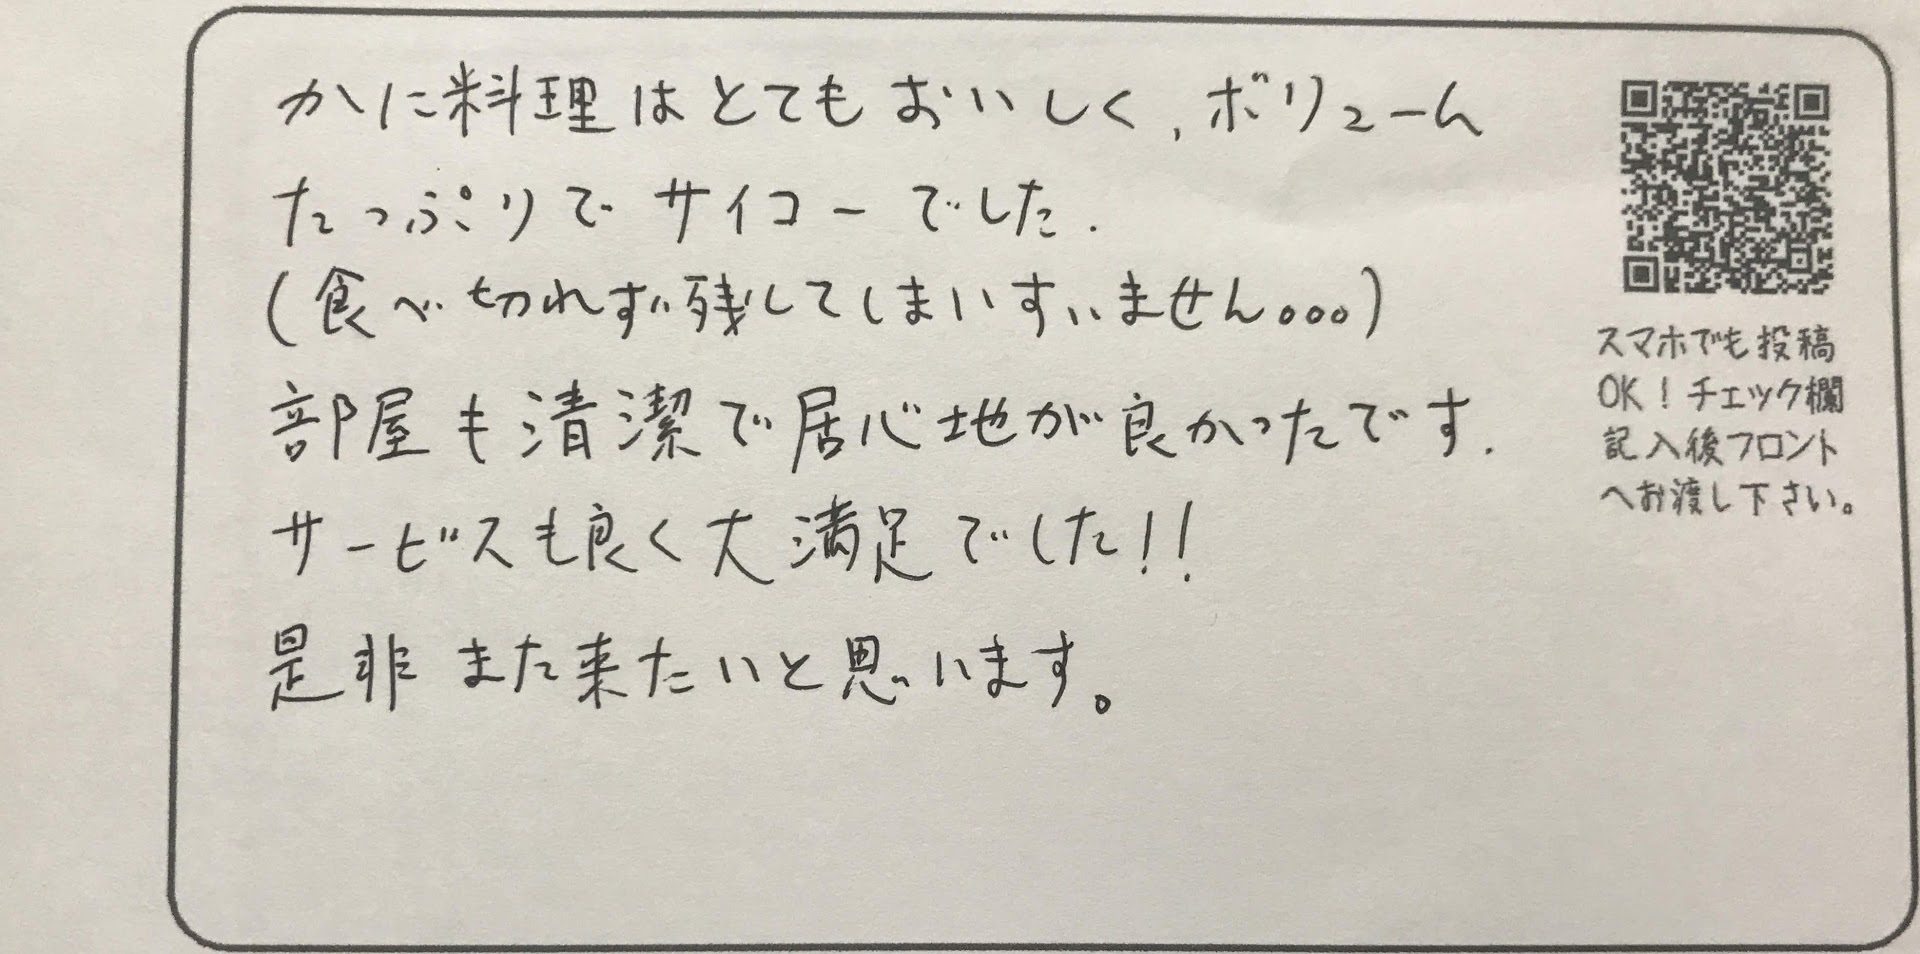 かに料理はとてもおいしく、ボリューム
たっぷりで サイコーでした.
(食べ切れず残してしまいすいません。。。)
部屋も清潔で居心地が良かったです.
サービスも良く大満足でした!!
是非 また来たいと思います。
スマホでも投稿
OK!チェック欄
記入後フロント
へお渡し下さい。